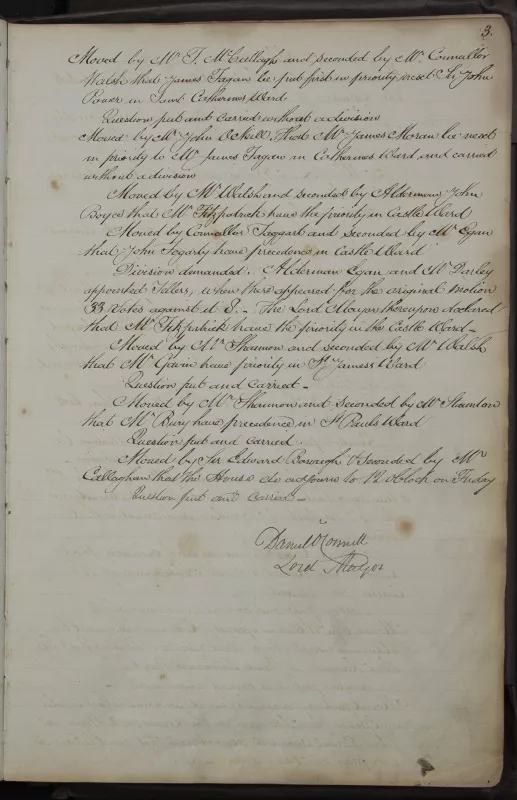 3.
Moved by Mr T. McCullagh and seconded by Mr Councillor
Walsh that James Fagan be put first in priority next Sir John
Power in Saint Catherines Ward
Question put and Carried without a division
Moved by Mr John O'Neill, that Mr James Moran be next
in priority to Mr James Fagan in Catherines Ward, and carried
without a division
Moved by Mr Walsh and seconded by Alderman John
Boyce that Mr Fitzpatrick have the priority in Castle Ward
Moved by Councillor Taggart and seconded by Mr Egan
that John Fogarty have precedence in Castle Ward
Division demanded. Alderman Egan and Mr Darley
appointed Tellers, when there appeared for the original motion
33 Votes against it 8.- The Lord Mayor thereupon declared
that Mr Fitzpatrick have the priority in the Castle Ward_
Moved by Mr Shannon and seconded by Mr Walsh
that Mr Gavin have priority in St James's Ward
Question put and Carried_
Moved by Mr Shannon and seconded by Mr Staunton
that Mr Bury have precedence in St Pauls Ward
Question put and carried.
Moved by Sir Edward Borough & Seconded by Mr
Callaghan that the House do adjourn to 12 oClock on Friday
Question put and Carried_
Daniel O'Connell
Lord Mayor